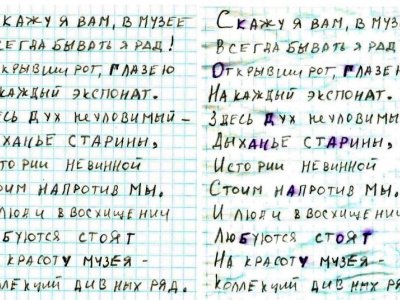 КАЖУ Я ВАМ, В МУЗЕЕ
СЕГДА БЫВАТЬ Я РАД!
ТКРЫВШИ РОТ, ГЛАЗЕЮ
КАЖДЫЙ ЭКСПОНАТ.
ЕСЬ ДУХ НЕУЛОВИМЫЙ –
ХАНЬЕ СТАРИНЫ,
СТОРИИ НЕВИННОЙ
ОИМ НАПРОТИВ МЫ.
ЛЮДИ В ВОСХИЩЕНИИ
БУЮТСЯ СТОЯТ
КРАСОТУ МУЗЕЯ –
ЛЛЕКЦИЙ ДИВНЫХ РЯД.
СКАЖУ Я ВАМ, В МУЗ
ВСЕГДА БЫВАТЬ Я РАД
ОТКРЫВШИ РОТ, ГЛАЗЕЮ
НА КАЖДЫЙ ЭКСПОНАТ.
ЗДЕСЬ ДУХ НЕУЛОВИМЫЙ
ДЫХАНЬЕ СТАРИНЫ,
ИСТОРИИ НЕВИННОЙ
СТОИМ НАПРОТИВ МЫ.
И ЛЮДИ В ВОСХИЩЕНИИ
ЛЮБУЮТСЯ СТОЯТ
НА КРАСОТУ МУЗЕЯ –
КОЛЛЕКЦИЙ ДИВНЫХ РЯД.